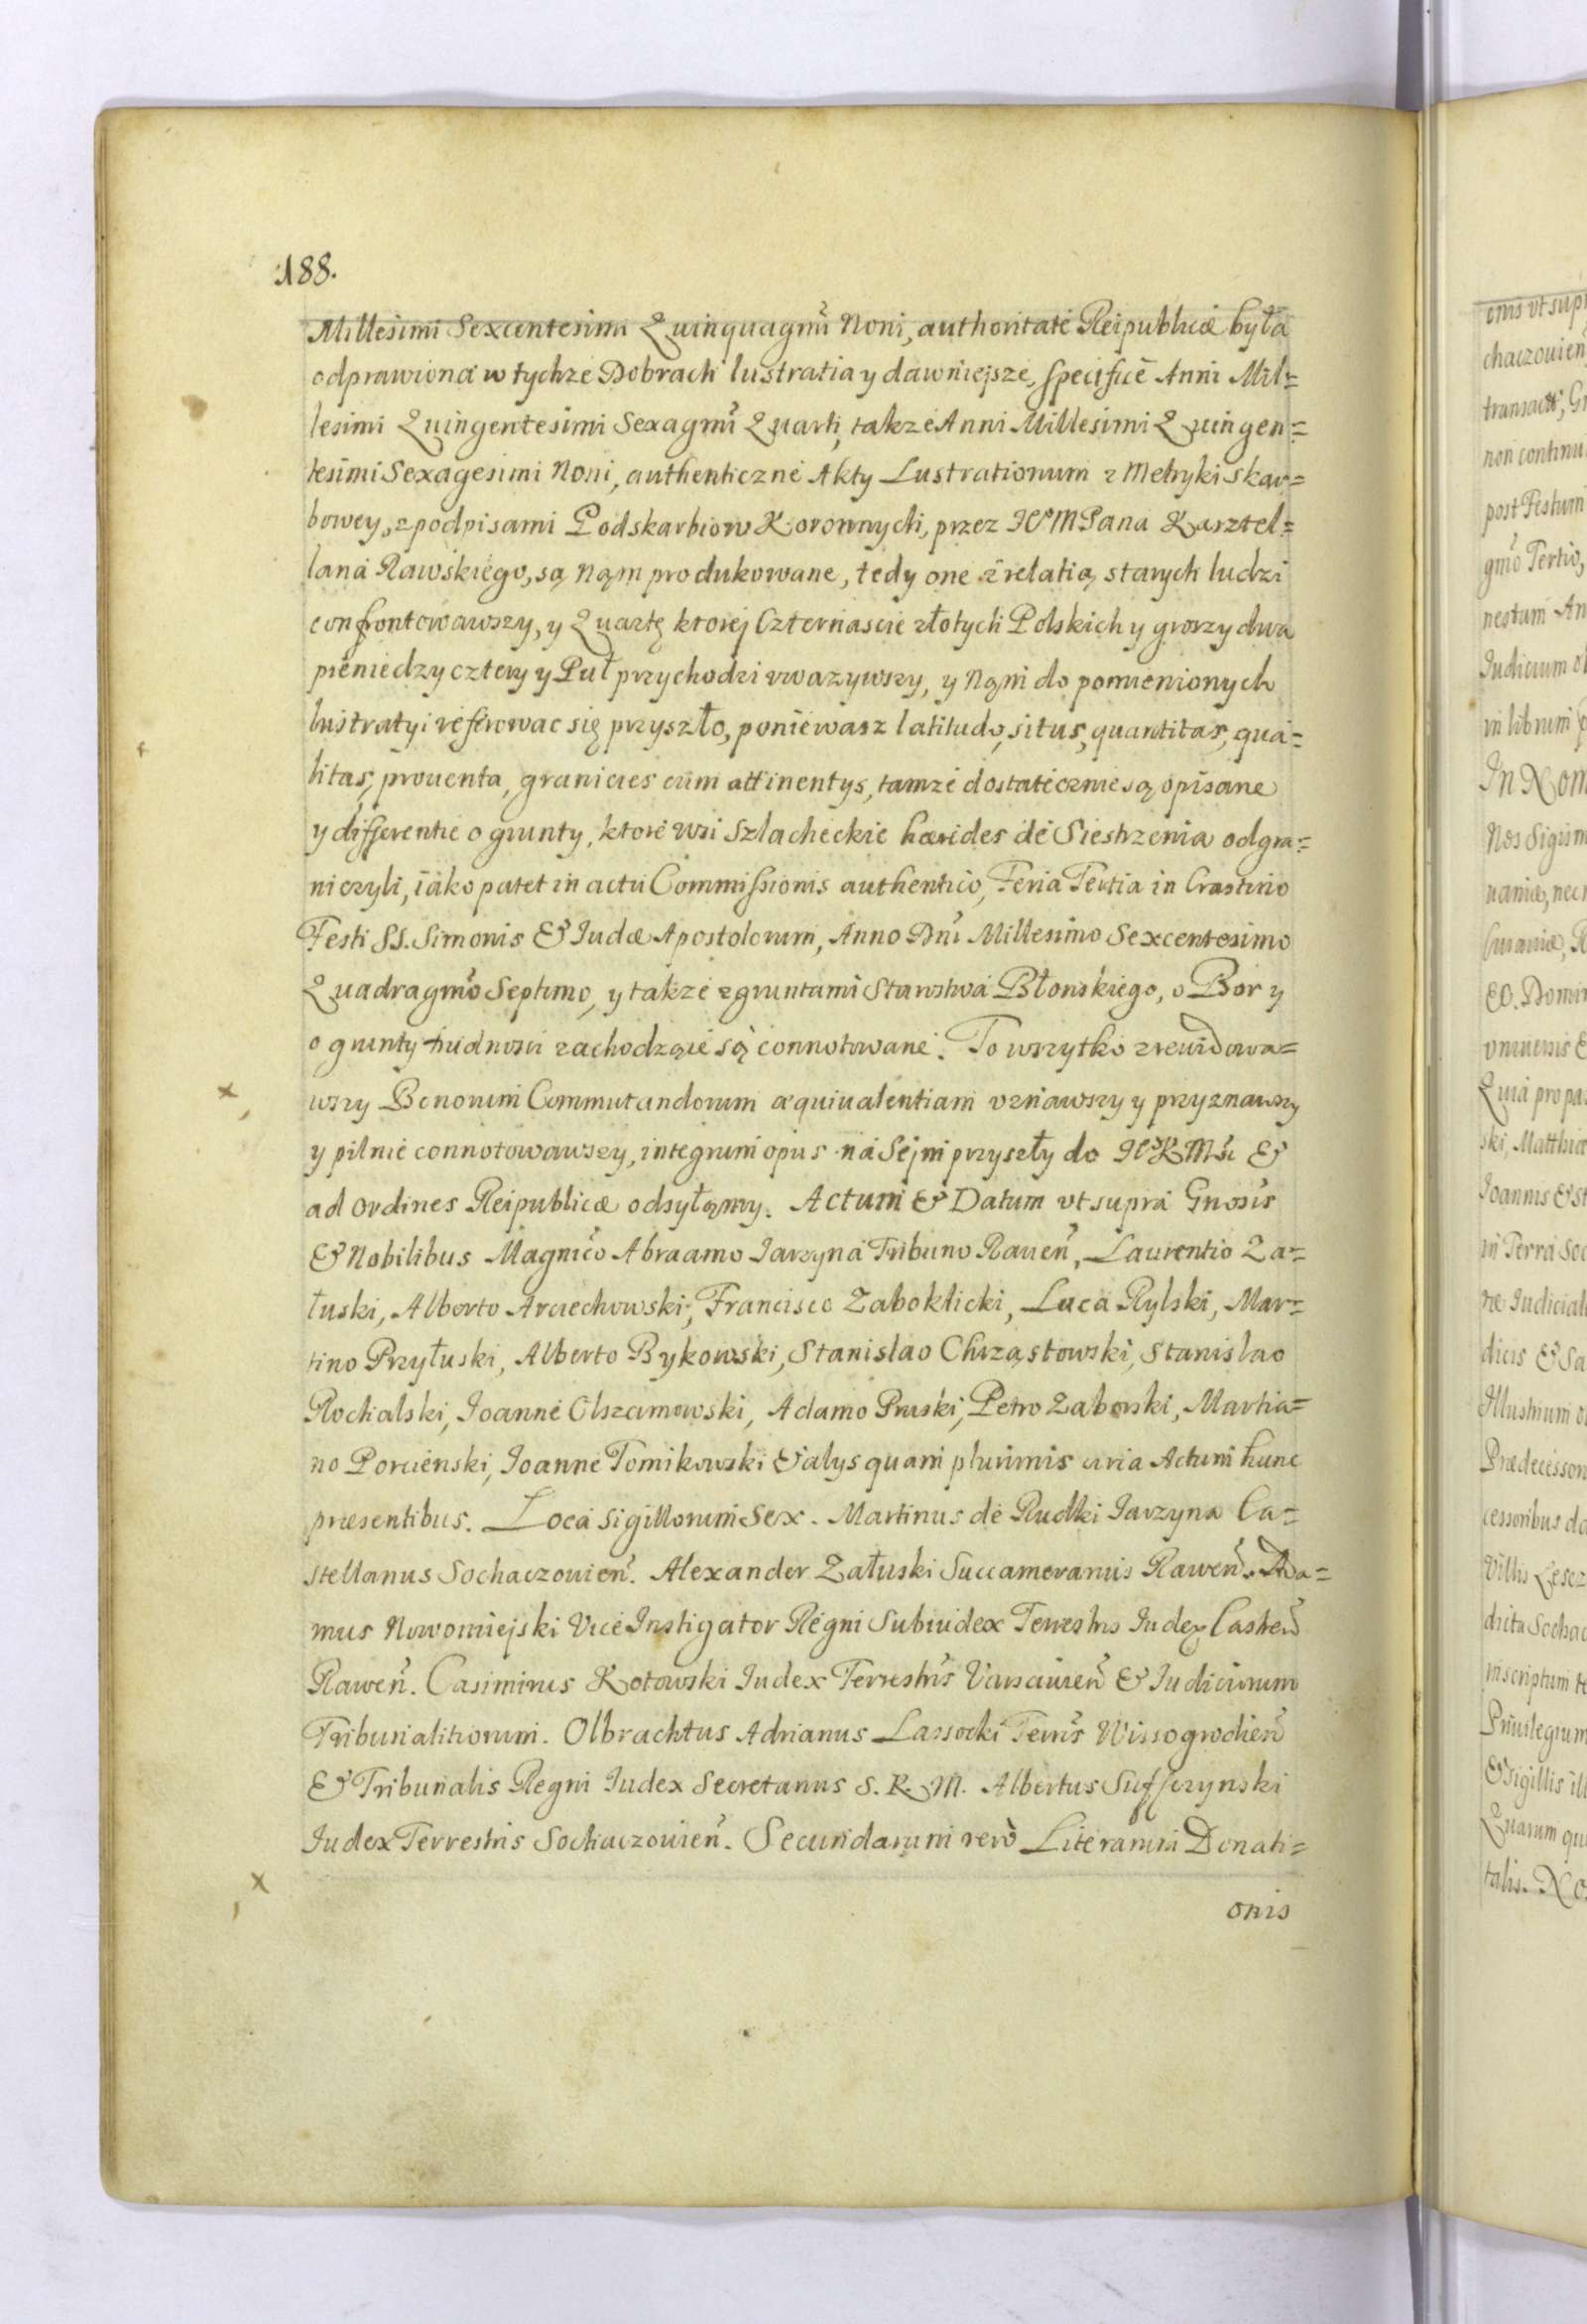 188.
Millesimi Sexcentesimi Quinquagmi Noni, authoritate Reipublicæ była
odprawiona w tychże Dobrach lustratia y dawniejsze, specifice Anni Mil=
lesimi Quingentesimi Sexagmi Quarti, także Anni Millesimi Quingen=
tesimi Sexagesimi Noni, authenticzne Akty Lustrationum z Metryki skar=
bowey, z podpisami Podskarbiow Koronnych, przez JE° M Pana Kasztel=
lana Rawskiego, są nąm produkowane, tedy one z relatią starych ludzi
confrontowawszy, y Quartę ktorej Czternascie złotych Polskich y groszy dwa
pieniedzy cztery y Puł przychodzi uwazywszy, y Nąm do pomienionych
lustratyi referowac się przyszło, poniewasz latitudo, situs, quantitas, qua=
litas, prouenta, granicies cum attinentys, tamże dostatecznie są opisane
y differentie o grunty, ktore wsi Szlacheckie hæredes de Siestrzenia odgra=
niczyli, iako patet in actu Commissionis authentico, Feria Tertia in Crastino
Festi SS. Simonis & Iudæ Apostolorum, Anno Dni Millesimo Sexcentesimo
Quadragmo Septimo, y także z gruntami Starostwa Błonskiego, o Bor y
o grunty trudnosci zachodzące są connotowane. To wszytko zrewidowa=
wszy Bonorum Commutandorum æquiualentiam uznawszy y przyznawszy
y pilnie connotowawszy, integrum opus na Sejm przyszły do JEKMsci &
ad ordines Reipublicæ odsyłąmy. Actum & Datum ut supra Gnosis
& Nobilibus Magnico Abraamo Iarzyna Tribuno Rauen, Laurentio Za=
łuski, Alberto Arciechowski, Francisco Zaboklicki, Luca Rylski, Mar=
tino Przyłuski, Alberto Bykowski, Stanislao Chrząstowski, Stanislao
Rochalski, Joanne Olszamowski, Adamo Pruski, Petro Zaborski, Martia=
no Porcienski, Joanne Tomikowski & alys quam plurimis circa Actum hunc
præsentibus. Loca Sigillorum Sex. Martinus de Rudki Iarzyna Ca=
stellanus Sochaczouien. Alexander Załuski Succamerarius Rawen. Ada=
mus Nowomiejski Vice Instigator Regni Subiudex Terrestris Iudex Castren
Rawen. Casimirus Kotowski Iudex Terrestris Varsauien & Iudiciorum
Tribunalitiorum. Olbrachtus Adrianus Lassocki Terris Wissogrodien
& Tribunalis Regni Iudex Secretarius S. R. M. Albertus Suffczynski
Iudex Terrestris Sochaczouien. Secundarum vero Literarum Donati=
onis